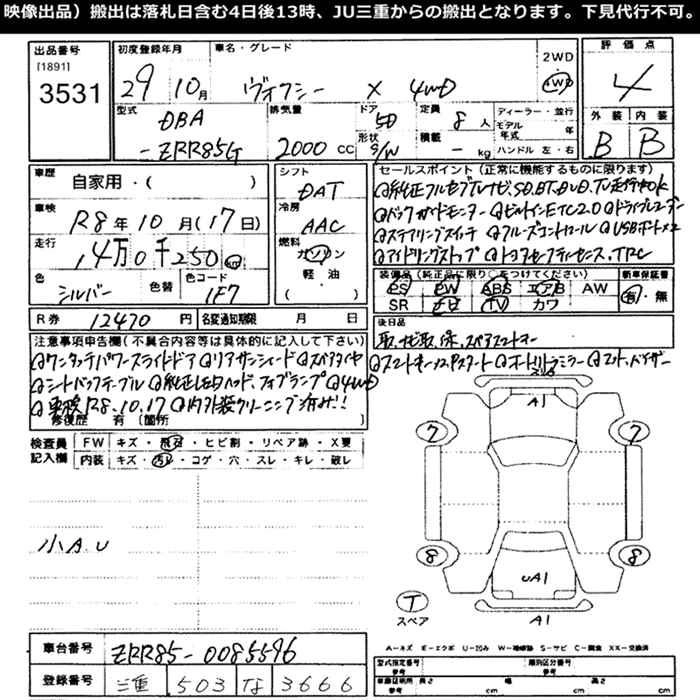 映像出品）搬出は落札日含む4日後13時、JU三重からの搬出となります。下見代行不可。
出品番号
[1891]
3531
初度登録年月
29年 10月
車名・グレード
ヴォクシー X 4WD
2WD
4WD
評価点
4
型式
DBA
-ZRR85G
排気量
2000 CC
ドア
5D
形状
S/W
定員
8人
積載
- kg
ディーラー・並行
モデル年式 年
ハンドル 左・右
外装 内装
B B
車歴
自家用・( )
車検
R8年10月(17日)
走行
14万0千250 km
色
シルバー
色替
色コード
1F7
シフト
DAT
冷房
AAC
燃料
ガソリン
軽・油
・( )
セールスポイント（正常に機能するものに限ります）
◎純正フルセグTVナビ、SD、BT、DVD、TV走行中OK
◎バックガイドモニター ◎ビルトインETC2.0 ◎ドライブレコーダー
◎ステアリングスイッチ ◎クルーズコントロール ◎USBポート×2
◎アイドリングストップ ◎トヨタセーフティセンス、TRC
装備品（純正品に限り○をつけてください）
PS PW ABS エアB AW
SR ナビ TV カワ
新車保証書
有・無
R券 12470円
名変通知期限 月 日
後日品
取、ナビ取、保、スペアスマートキー
注意事項申告欄(不具合内容等は具体的に記入して下さい)
◎ワンタッチパワースライドドア ◎リアサンシェード ◎スペアタイヤ
◎スマートキー×2、Pスタート ◎オートリトラミラー ◎マット、バイザー
◎シートバックテーブル ◎純正LEDヘッド、フォグランプ ◎4WD
◎車検R8.10.17 ◎内外装クリーニング済み!!
修復歴 有(箇所 )
検査員記入欄
FW キズ・飛石・ヒビ割・リペア跡・X要
内装 キズ・汚れ・コゲ・穴・スレ・キレ・破レ
小A.U
A1
7 7
8 8
UA1
A1
T
スペア
A-キズ E-エクボ U-凹み W-補修跡 S-サビ C-腐食 XX-交換済
車台番号
ZRR85-0085596
登録番号
三重 503 な 3666
型式指定番号
参考
類別区分番号
参考
車両証明用 長さ
参考 cm
幅
cm
高さ
cm